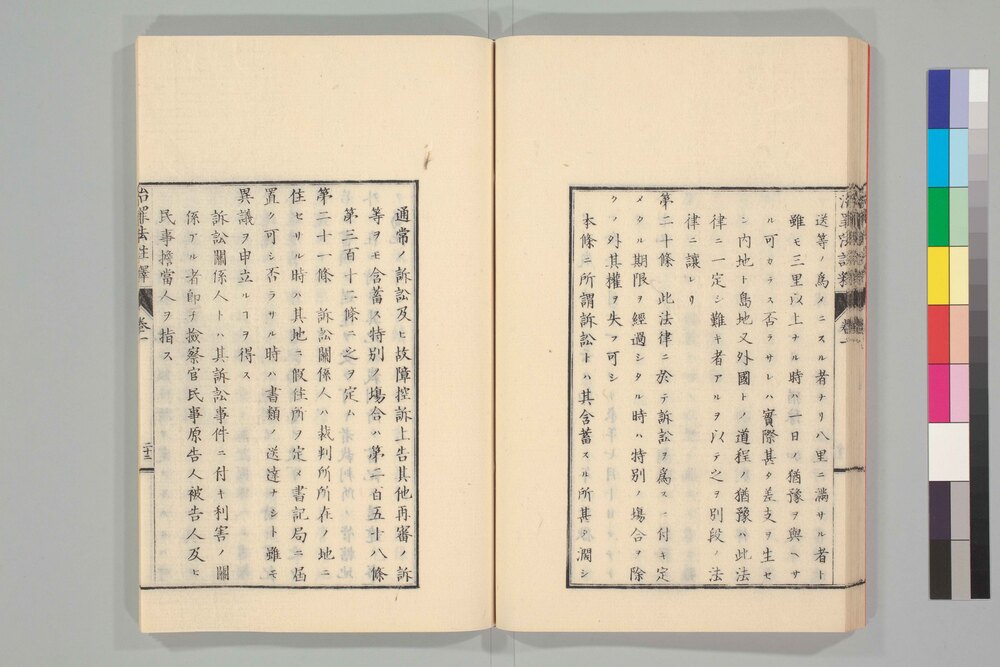 送等ノ爲メニスル者ナリ八里ニ滿サル者ト
雖モ三里以上ナル時ハ一日ノ猶豫ヲ與ヘサ
ル可カラス否ラサレハ實際甚タ差支ヲ生セ
シ内地ト島地又外國トノ道程ノ猶豫ハ此法
律ニ一定シ難キ者アルヲ以テ之ヲ別段ノ法
律ニ讓レリ
第二十條 此法律ニ於テ訴訟ヲ爲スニ付キ定
メタル期限ヲ經過シタル時ハ特別ノ塲合ヲ除
クノ外其權ヲ失フ可シ
本條ニ所謂訴訟トハ其含蓄スル所甚タ濶シ
通常ノ訴訟及ヒ故障控訴上告其他再審ノ訴
等ヲモ含蓄ス特別ノ塲合ハ第二百五十八條
第三百十二條ニ之ヲ定ム
第二十一條 訴訟關係人ハ裁判所所在ノ地ニ
住セサル時ハ其地ニ假住所ヲ定メ書記局ニ屆
置ク可シ否ラサル時ハ書類ノ送達ナシト雖モ
異議ヲ申立ルヿヲ得ス
訴訟關係人トハ其訴訟事件ニ付キ利害ノ關
係アル者即チ撿察官民事原告人被告人及ヒ
民事擔當人ヲ指ス
治罪法註釋 卷一 二十二